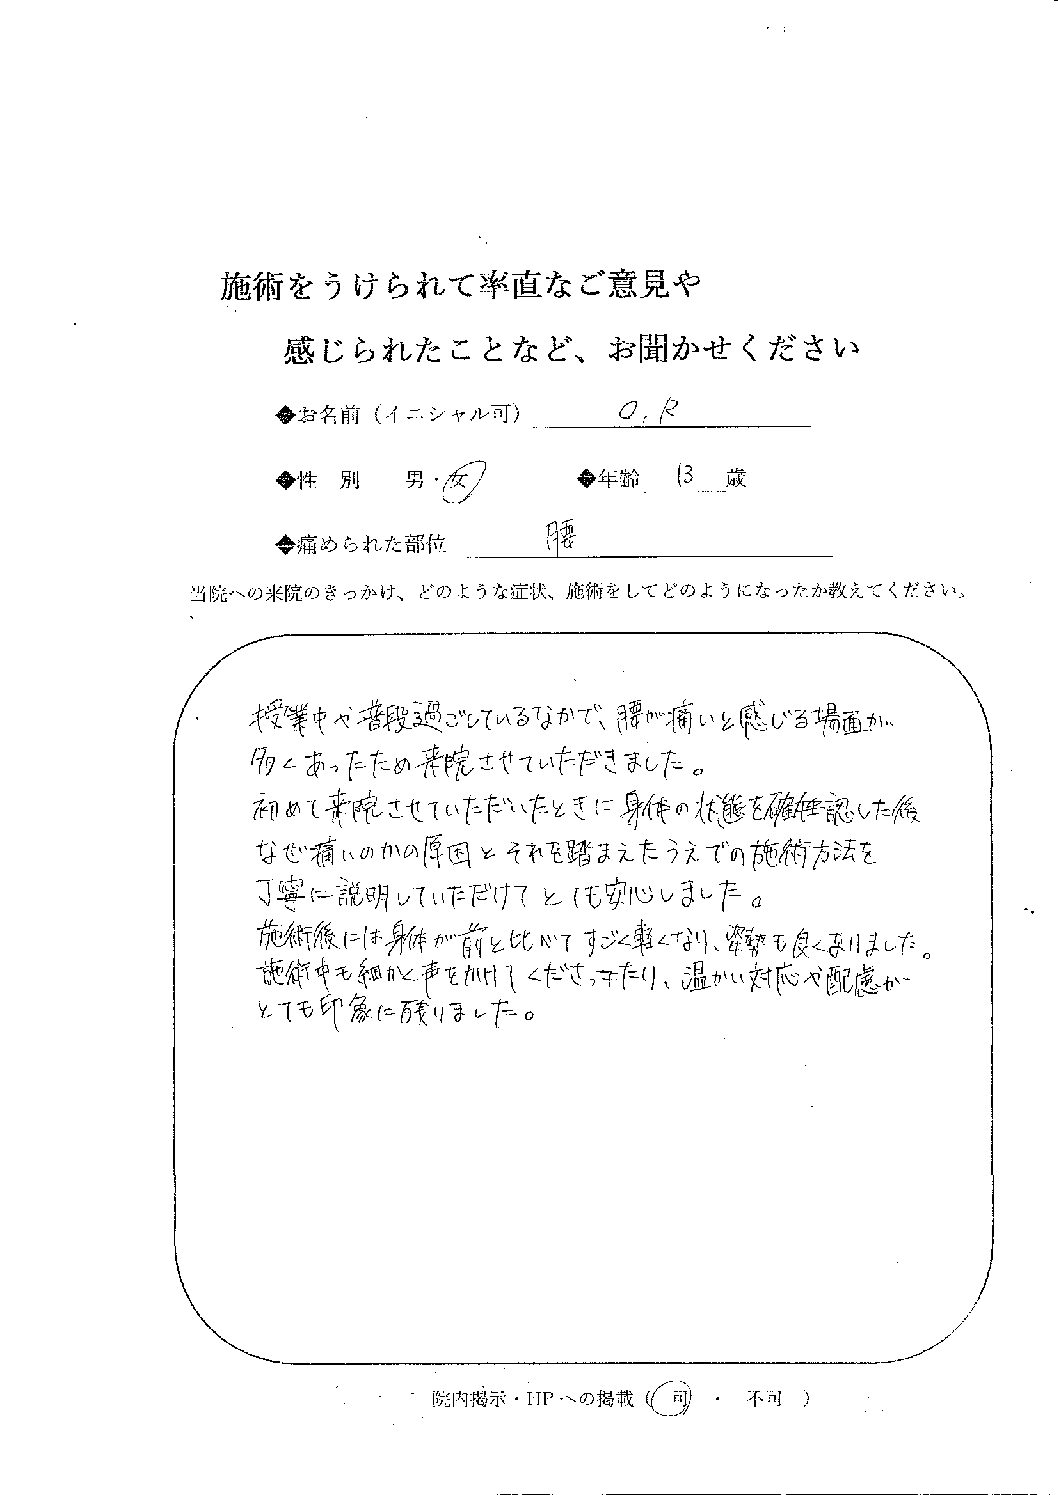 施術をうけられて率直なご意見や
感じられたことなど、お聞かせください
◆お名前（イニシャル可） O.R
◆性 別 男・女 ◆年齢 13 歳
◆痛められた部位 腰
当院への来院のきっかけ、どのような症状、施術をしてどのようになったか教えてください。
授業中や普段過ごしているなかで、腰が痛いと感じる場面が
多くあったため来院させていただきました。
初めて来院させていただいたときに身体の状態を確認した後
なぜ痛いのかの原因とそれを踏まえたうえでの施術方法を
丁寧に説明していただけてとても安心しました。
施術後には身体が前と比べてすごく軽くなり、姿勢も良くなりました。
施術中も細かく声をかけてくださったり、温かい対応や配慮が
とても印象に残りました。
院内掲示・HPへの掲載（ 可 ・ 不可 ）